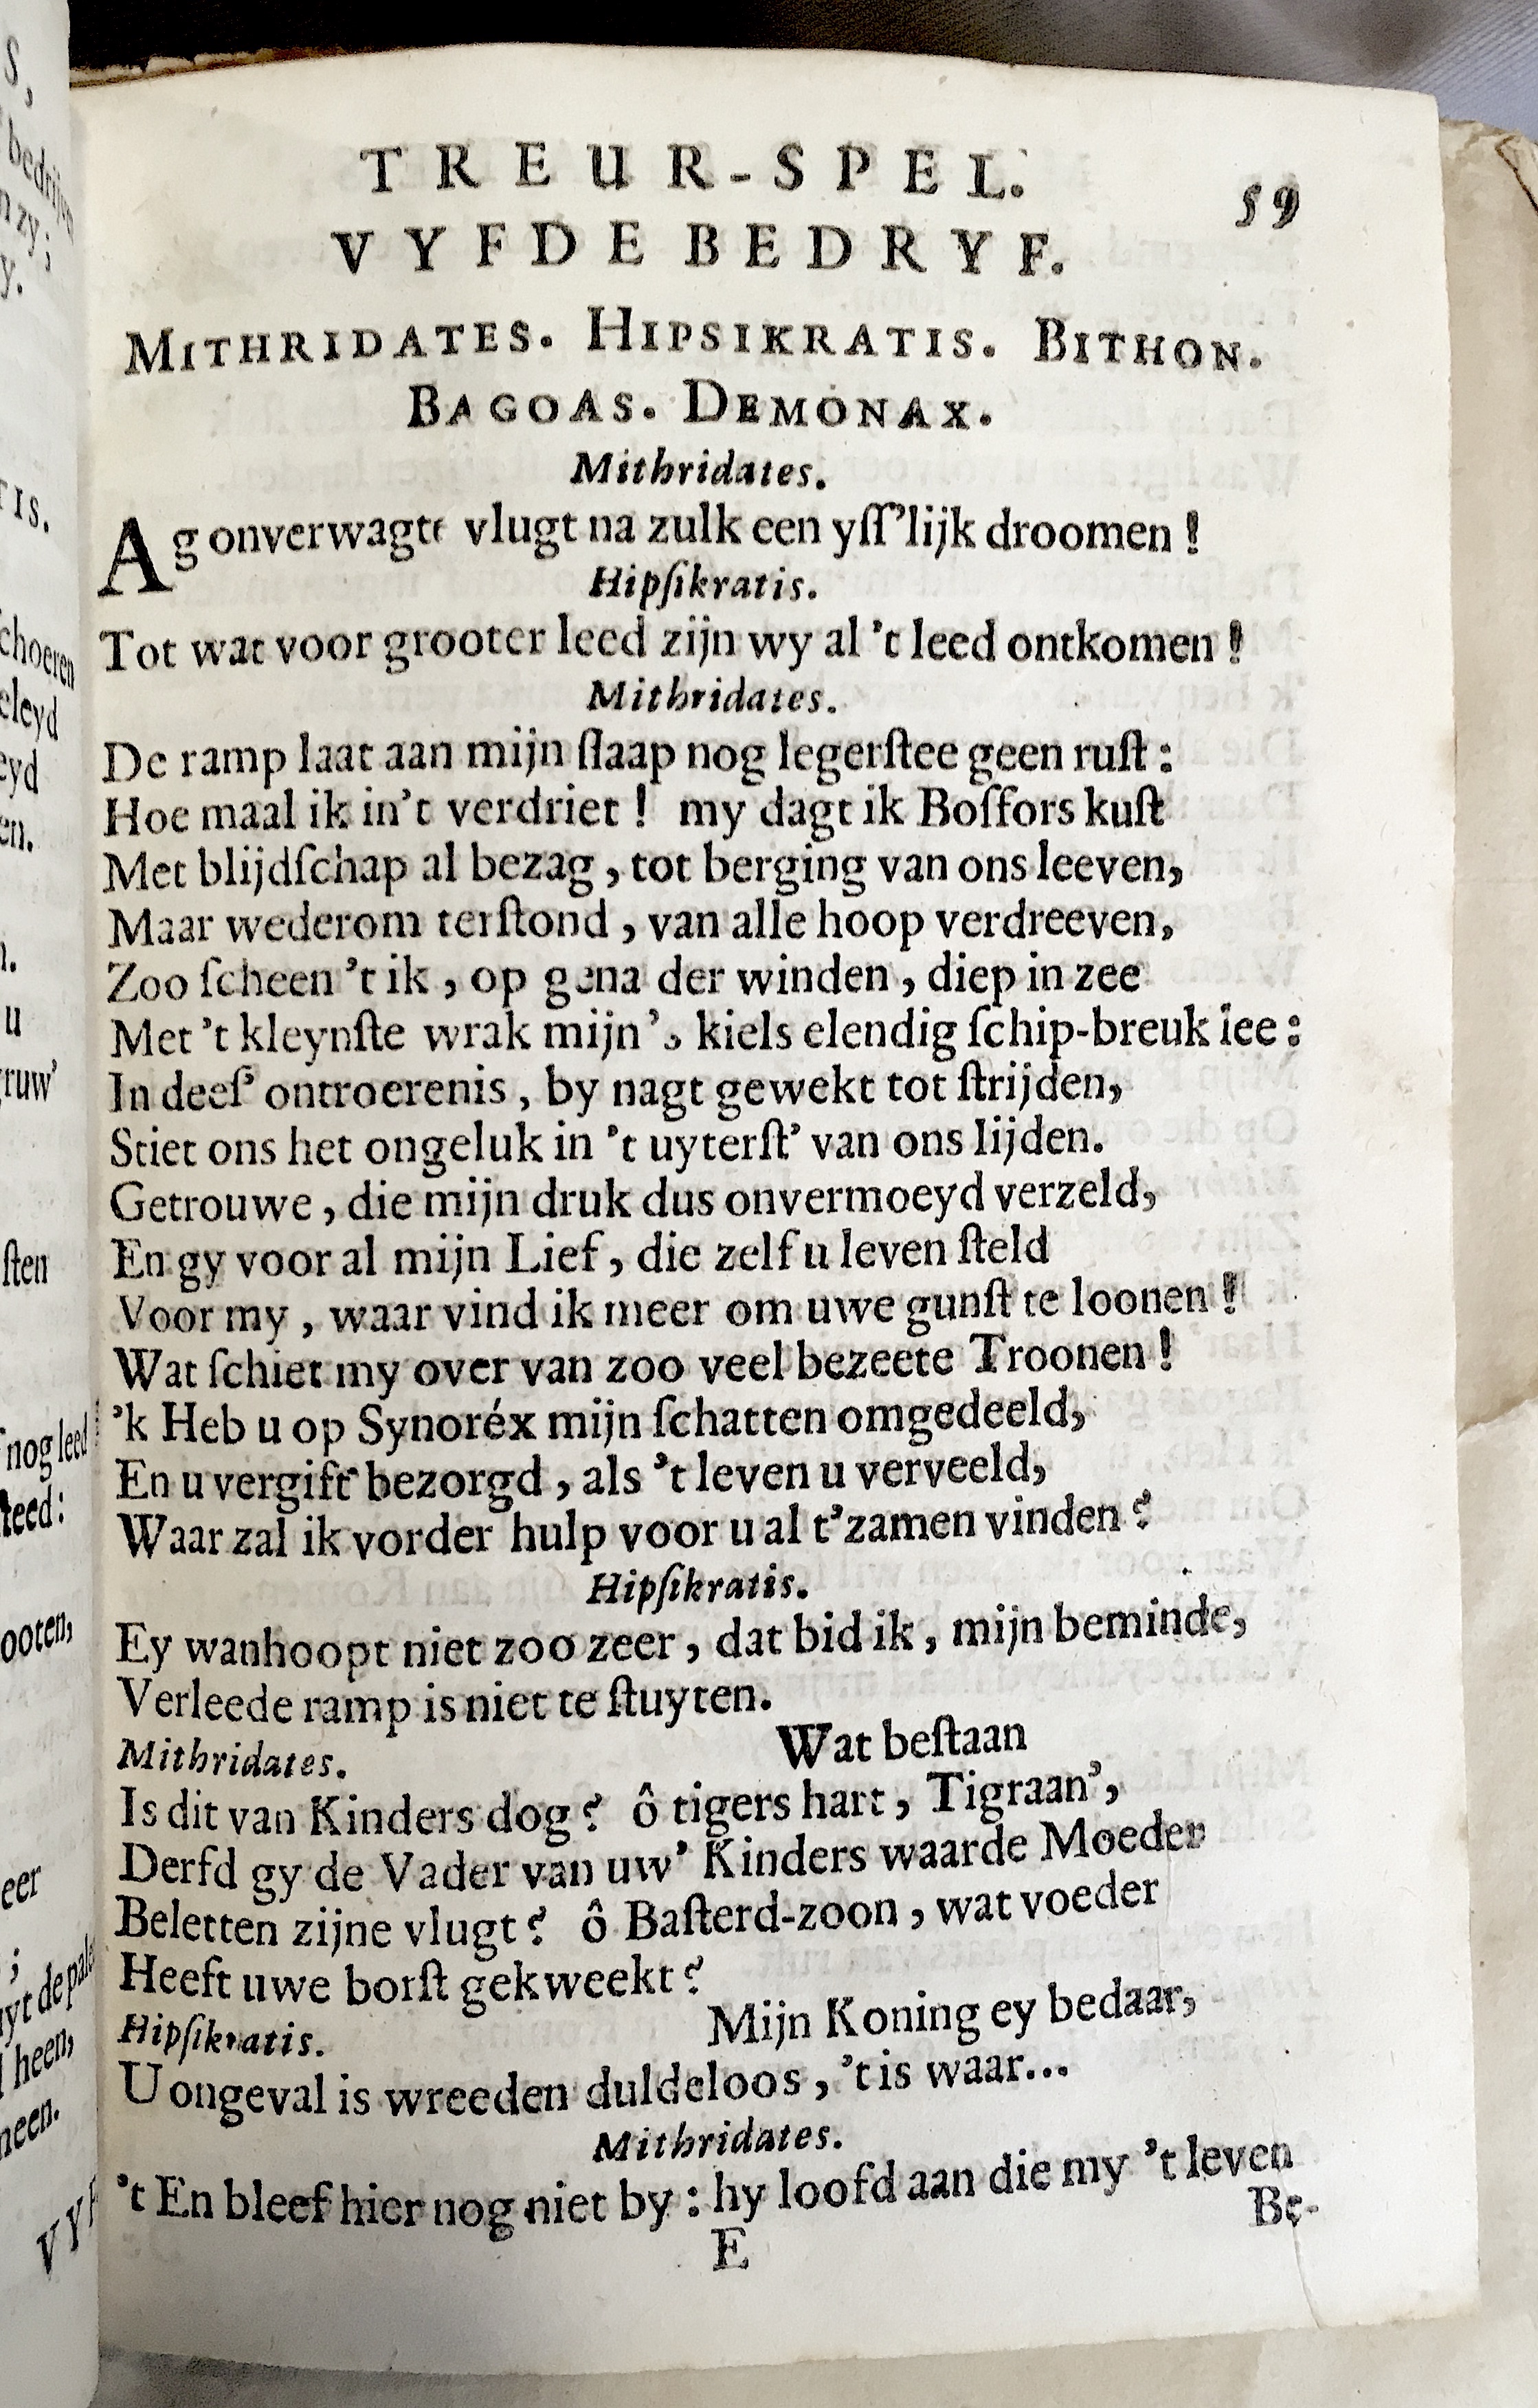 TREUR-SPEL. 59
VYFDE BEDRYF.
MITHRIDATES. HIPSIKRATIS. BITHON.
BAGOAS. DEMONAX.
Mithridates.
Ag onverwagte vlugt na zulk een yſſ'lijk droomen!
Hipſikratis.
Tot wat voor grooter leed zijn wy al 't leed ontkomen!
Mithridates.
De ramp laat aan mijn ſlaap nog legerſtee geen ruſt:
Hoe maal ik in't verdriet! my dagt ik Boſfors kuſt
Met blijdſchap al bezag, tot berging van ons leeven,
Maar wederom terſtond, van alle hoop verdreeven,
Zoo ſcheen 't ik, op gena der winden, diep in zee
Met 't kleynſte wrak mijn's kiels elendig ſchip-breuk lee:
In deeſ' ontroerenis, by nagt gewekt tot ſtrijden,
Stiet ons het ongeluk in 't uyterſt' van ons lijden.
Getrouwe, die mijn druk dus onvermoeyd verzeld,
En gy voor al mijn Lief, die zelf u leven ſteld
Voor my, waar vind ik meer om uwe gunſt te loonen!
Wat ſchiet my over van zoo veel bezeete Troonen!
'k Heb u op Synoréx mijn ſchatten omgedeeld,
En u vergift bezorgd, als 't leven u verveeld,
Waar zal ik vorder hulp voor u al t'zamen vinden?
Hipſikratis.
Ey wanhoopt niet zoo zeer, dat bid ik, mijn beminde,
Verleede ramp is niet te ſtuyten.
Mithridates. Wat beſtaan
Is dit van Kinders dog? ô tigers hart, Tigraan',
Derfd gy de Vader van uw' Kinders waarde Moeder
Beletten zijne vlugt? ô Baſterd-zoon, wat voeder
Heeft uwe borſt gekweekt?
Hipſikratis. Mijn Koning ey bedaar,
U ongeval is wreed en duldeloos, 't is waar...
Mithridates.
't En bleef hier nog niet by: hy loofd aan die my 't leven
E Be-